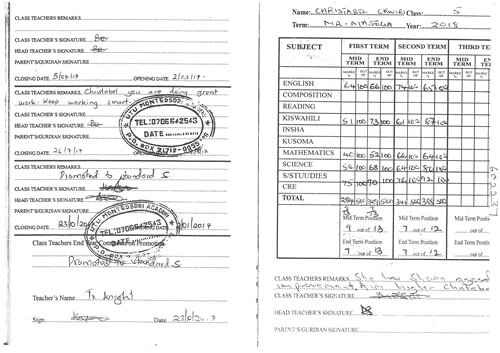 CLASS TEACHERS REMARKS
CLASS TEACHER'S SIGNATURE
HEAD TEACHER'S SIGNATURE
PARENT'S/GURDIAN SIGNATURE
CLOSING DATE 5/04/17 OPENING DATE 2/05/17
CLASS TEACHERS REMARKS Christabel you are doing great
work. Keep working smart
CLASS TEACHER'S SIGNATURE
HEAD TEACHER'S SIGNATURE
PARENT'S/GURDIAN SIGNATURE
UTU MONTESSORI
TEL:0706642543
DATE
P.O. BOX 21712-00505
CLOSING DATE 26/7/17
CLASS TEACHERS REMARKS
Promoted to standard 5
CLASS TEACHER'S SIGNATURE
HEAD TEACHER'S SIGNATURE
PARENT'S/GURDIAN SIGNATURE
UTU MONTESSORI ACADEMY
TEL:0706642543
CLOSING DATE 23/ /01/2017
Class Teachers End Year Comment on Promotion
Promoted to standard 5
Teacher's Name Ts Knight
Sign Date 23/ /2017
Name CHRISTABEL Class: 5
Term: MR. MASELA Year: 2018
SUBJECT FIRST TERM SECOND TERM THIRD TE
MID TERM END TERM MID TERM END TERM MID TERM EN TE
MARKS % OUT OF MARKS % OUT OF MARKS % OUT OF MARKS % OUT OF MARKS % OUT OF MARKS %
ENGLISH 64 100 66 100 74 100 65 100
COMPOSITION
READING
KISWAHILI 51 100 73 100 61 100 87 100
INSHA
KUSOMA
MATHEMATICS 40 100 52 100 66 100 64 100
SCIENCE 100 68 100 64 100 80 100
S/STUUDIES
CRE 75 100 70 100 76 100 92 100
TOTAL 500 500 341 500 388 500
Mid Term Position Mid Term Position Mid Term Po
9 out of 13 7 out of 12 out of
End Term Position End Term Position End Term Po
7 out of 13 7 out of 12 out of
CLASS TEACHERS REMARKS She has shown good
improvement. Aim higher
CLASS TEACHER'S SIGNATURE
HEAD TEACHER'S SIGNATURE
PARENT'S/GURDIAN SIGNATURE